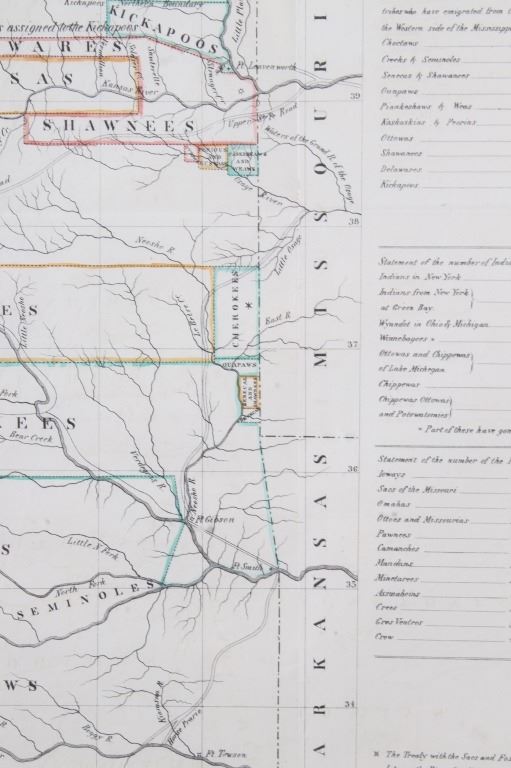 Kickapoos
Northern Boundary
KICKAPOOS
Little
s assigned to the Kickapoos
WARES
Ft Leavenworth
SAS
Kansas River
39
SHAWNEES
Upper
Road
Waters of the Grand R. of the Osage
PIANKESHAWS
AND
WEAS
Osage River
38
Neosho R.
Little Osage
MISSOURI
CHEROKEES
*
ES
Little Neosho
East R
37
QUAPAWS
SENECAS
AND
SHAWNEES
Fork
KEES
Bear Creek
36
Verdegris R
Neosho R
Ft Gibson
S
Little N Fork
Ft Smith
North Fork
35
SEMINOLES
ARKANSAS
WS
34
Kiamisha R
Horse Prairie
Boggy R
Ft Towson
tribes who have emigrated from t
the Western side of the Mississipp
Choctaws
Creeks & Seminoles
Senecas & Shawanees
Quapaws
Piankeshaws & Weas
Kaskaskias & Peorias
Ottowas
Shawanees
Delawares
Kickapoos
Statement of the number of India
Indians in New York
Indians from New York
at Green Bay
Wyandot in Ohio & Michigan
Winnebagoes *
Ottowas and Chippewas
of Lake Michegan
Chippewas
Chippewas Ottowas
and Potowatomies
* Part of these have gon
Statement of the number of the I
Ioways
Sacs of the Missouri
Omahas
Ottoes and Missourias
Pawnees
Camanches
Mandans
Minetarees
Assinaboins
Crees
Gros Ventres
Crow
* The Treaty with the Sacs and Fox